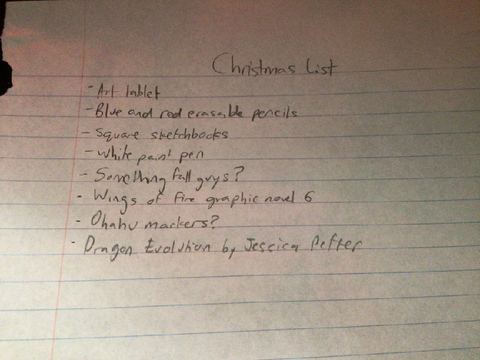 Christmas List
- Art tablet
- Blue and red erasable pencils
- Square sketchbooks
- White paint pen
- Something fall guys?
- Wings of fire graphic novel 6
- Ohahu markers?
- Dragon Evolution by Jessica Peffer